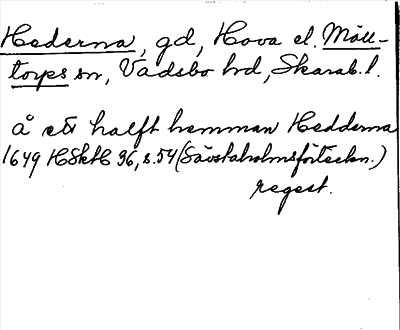 Hederna, gd, Hova el. Måll-
torps sn, Vadsbo hd, Skarab. l.
å ett halft hemman Hedderna
1649 HSkH 36, s. 54 (Sävstaholmsförteckn.)
regest.